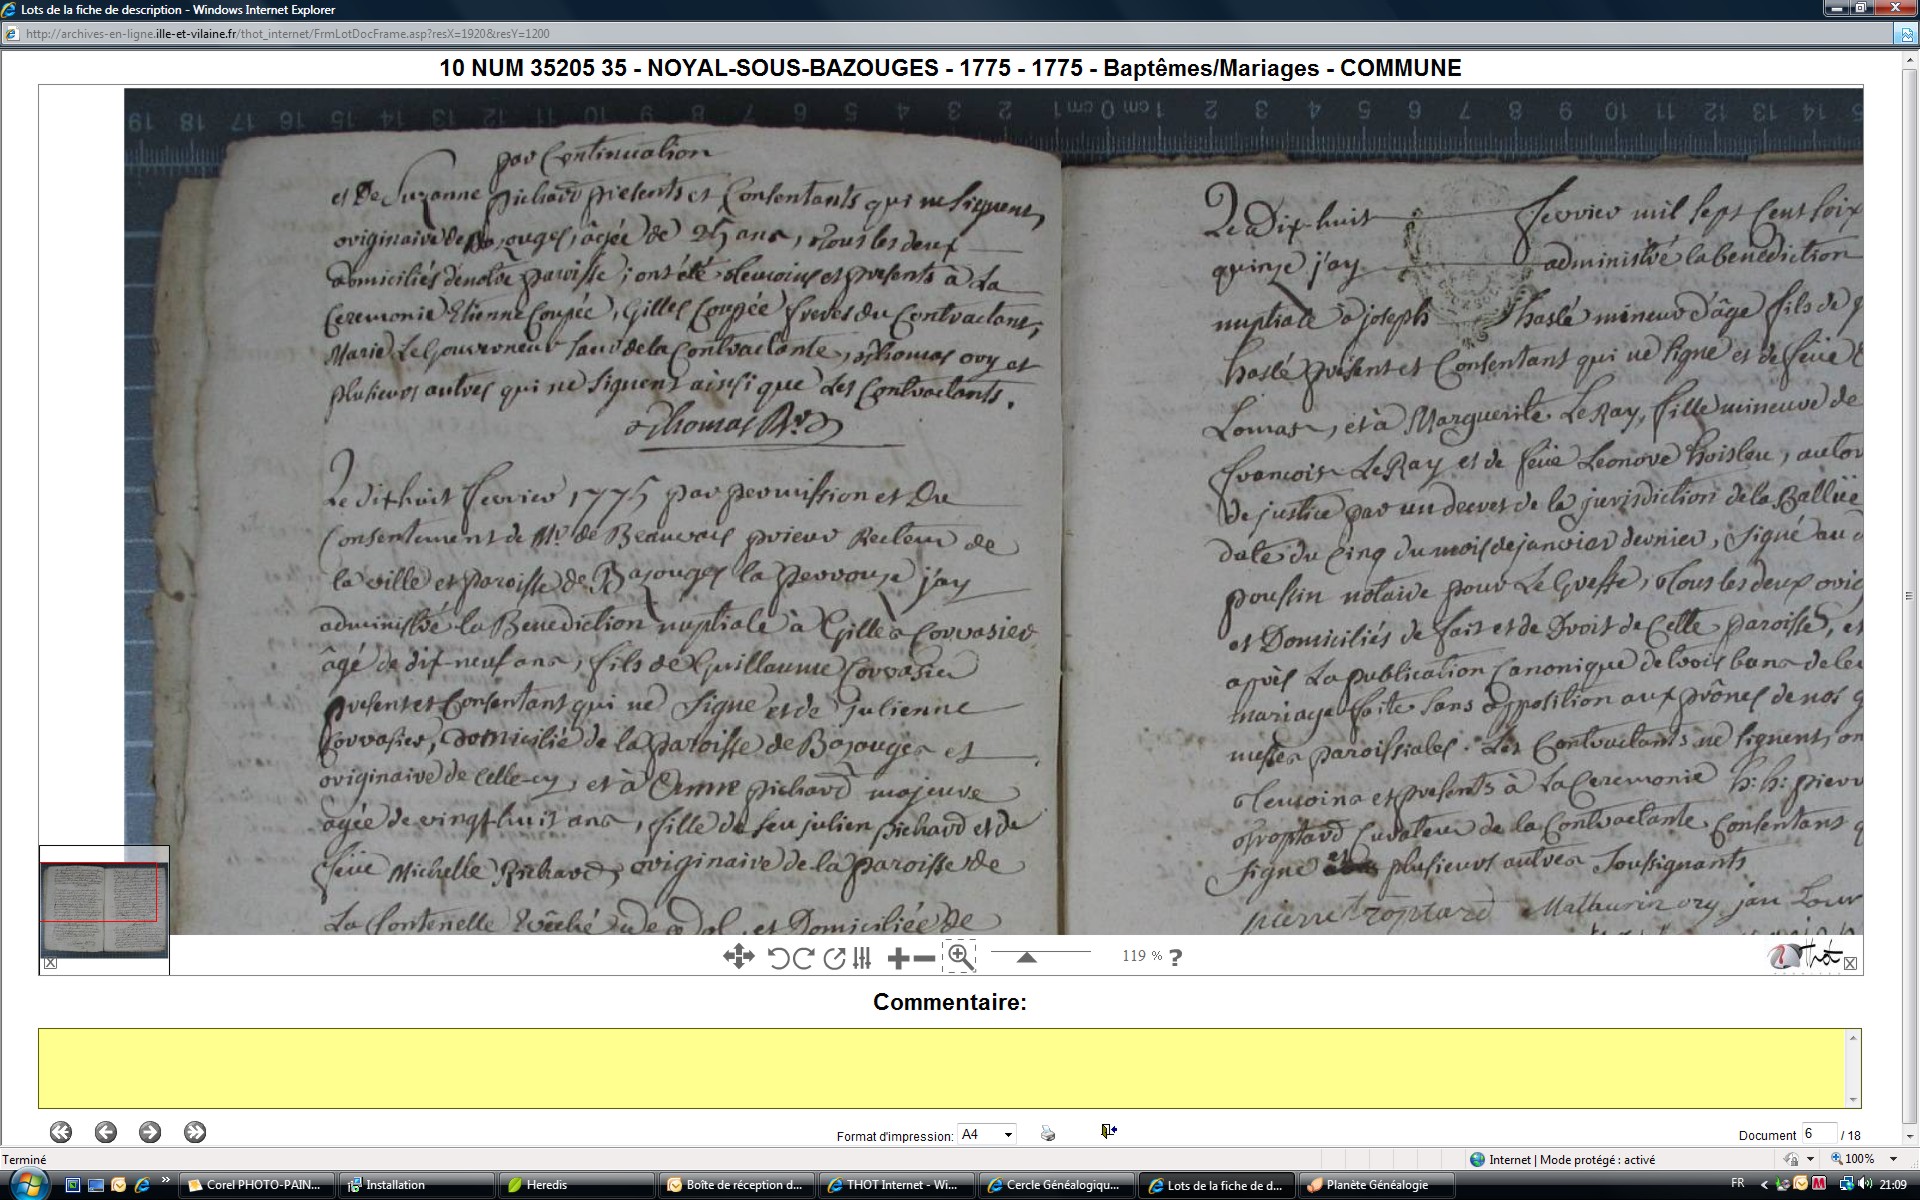 Lots de la fiche de description - Windows Internet Explorer
http://archives-en-ligne.ille-et-vilaine.fr/thot_internet/FrmLotDocFrame.asp?resX=1920&resY=1200
10 NUM 35205 35 - NOYAL-SOUS-BAZOUGES - 1775 - 1775 - Baptêmes/Mariages - COMMUNE
19 18 17 16 15 14 13 12 11 10 9 8 7 6 5 4 3 2 1 cm 0 1 cm 2 3 4 5 6 7 8 9 10 11 12 13 14 15
par Continuation
et De Suzanne pichard présents et Consentants qui ne signent,
originaire de Bazouges, âgée de 25 ans, tous les deux
domiciliés de notre paroisse; ont été temoins et presents à La
Ceremonie Etienne Coupée, Gilles Coupée freres du Contractant,
Marie Le Gouverneur de la Contractante, Thomas ory et
plusieurs autres qui ne signent ainsi que Les Contractants.
Thomas
Le dixhuit fevrier 1775 par permission et Du
Consentement de Mr. de Beauvais prieur Recteur de
la ville et paroisse de Bazouges la perrouze j'ay
administré la Benediction nuptiale à Gilles Corvasier
âgé de dix-neuf ans, fils de Guillaume Corvasier
present et Consentant qui ne signe et de julienne
Corvasier, Domicilié de la paroisse de Bazouges et
originaire de celle-cy, et à Anne pichard majeure
agée de vingt-huit ans, fille de feu julien pichard et de
feüe Michelle Richard, originaire de la paroisse de
La fontenelle Evêché de Dol, et Domiciliée de
Le Dix-huit fevrier mil sept Cent soix
quinze j'ay administré la benediction
nuptiale à joseph haslé mineur d'âge fils de
haslé présent et Consentant qui ne signe et de feüe
Lomas, et à Marguerite Le Ray, fille mineure de
francois Le Ray et de feüe Leonore hoisleu, autor
de justice par un decret de la jurisdiction de la Balluë
date du Cinq du mois de janvier dernier, signé au
poussin notaire pour Le Greffe, tous les deux orig
et Domiciliés de fait et de Droit de Cette paroisse, et
après La publication Canonique de trois bans de leu
mariage faite sans opposition aux prônes de nos g
messes paroissiales. Les Contractants ne signent, on
temoins et presents à La Ceremonie h: h: pierre
troptard Curateur de la Contractante Consentant q
signe et plusieurs autres soussignants
pierre troptard Mathurin ory jan Lour
119 % ?
Thot
Commentaire:
Format d'impression: A4
Document 6 / 18
Terminé
Internet | Mode protégé : activé
100%
Corel PHOTO-PAIN...
Installation
Heredis
Boîte de réception d...
THOT Internet - Wi...
Cercle Généalogiqu...
Lots de la fiche de d...
Planète Généalogie
FR
21:09